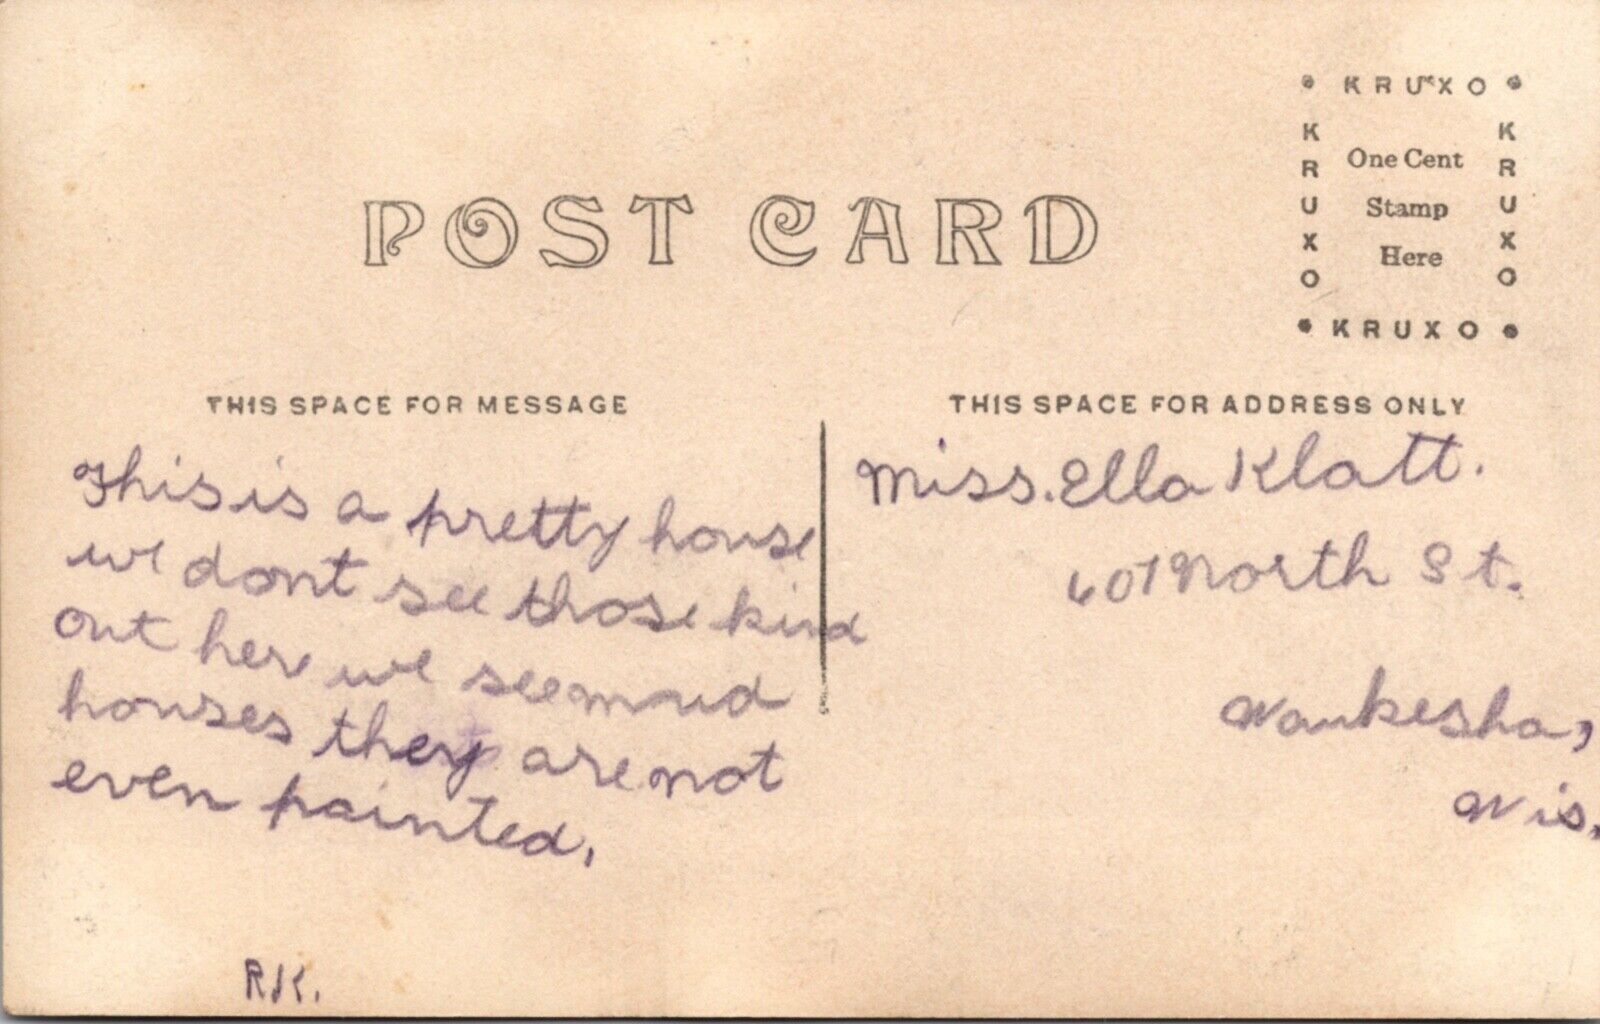 POST CARD
KRUXO
KRUXO
One Cent
Stamp
Here
KRUXO
KRUXO
THIS SPACE FOR MESSAGE
This is a pretty house
we dont see those kind
out here we see mud
houses they are not
even painted.
RK.
THIS SPACE FOR ADDRESS ONLY
Miss. Ella Klatt.
607 North St.
Waukesha,
Wis.